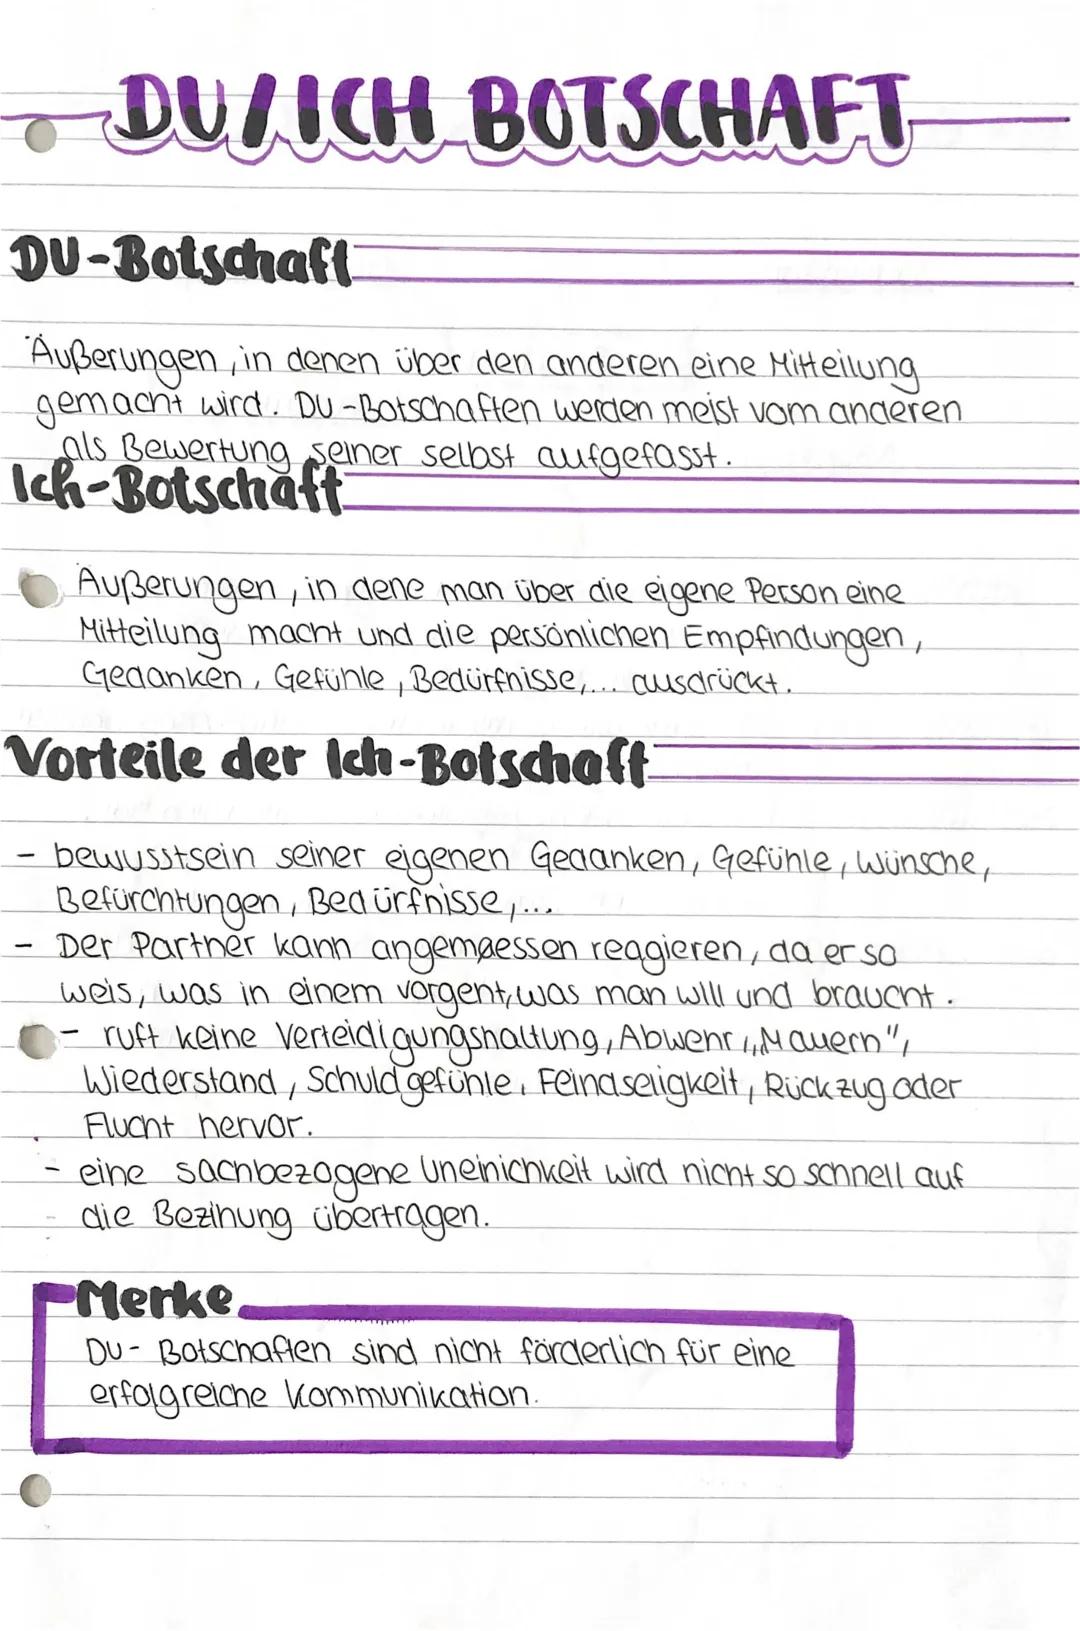 DU/ICH BOTSCHAFT
DU-Botschaft
Äußerungen, in denen über den anderen eine Mitteilung
gemacht wird. DU-Botschaften werden meist vom anderen
als Bewertung seiner selbst aufgefasst.
Ich-Botschaft
Äußerungen, in dene man über die eigene Person eine
Mitteilung macht und die persönlichen Empfindungen,
Gedanken, Gefühle, Bedürfnisse,... ausdrückt.
Vorteile der Ich-Botschaft
- bewusstsein seiner eigenen Gedanken, Gefühle, Wünsche,
Befürchtungen, Bedürfnisse,...
- Der Partner kann angemaessen reagieren, da er so
weis, was in einem vorgeht, was man will und braucht.
- ruft keine Verteidigungshaltung, Abwehr, „Mauern",
Wiederstand, Schuldgefühle, Feindseligkeit, Rückzug oder
Flucht hervor.
- eine sachbezogene Uneinichkeit wird nicht so schnell auf
- die Bezihung übertragen.
Merke
DU- Botschaften sind nicht förderlich für eine
erfolgreiche Kommunikation.